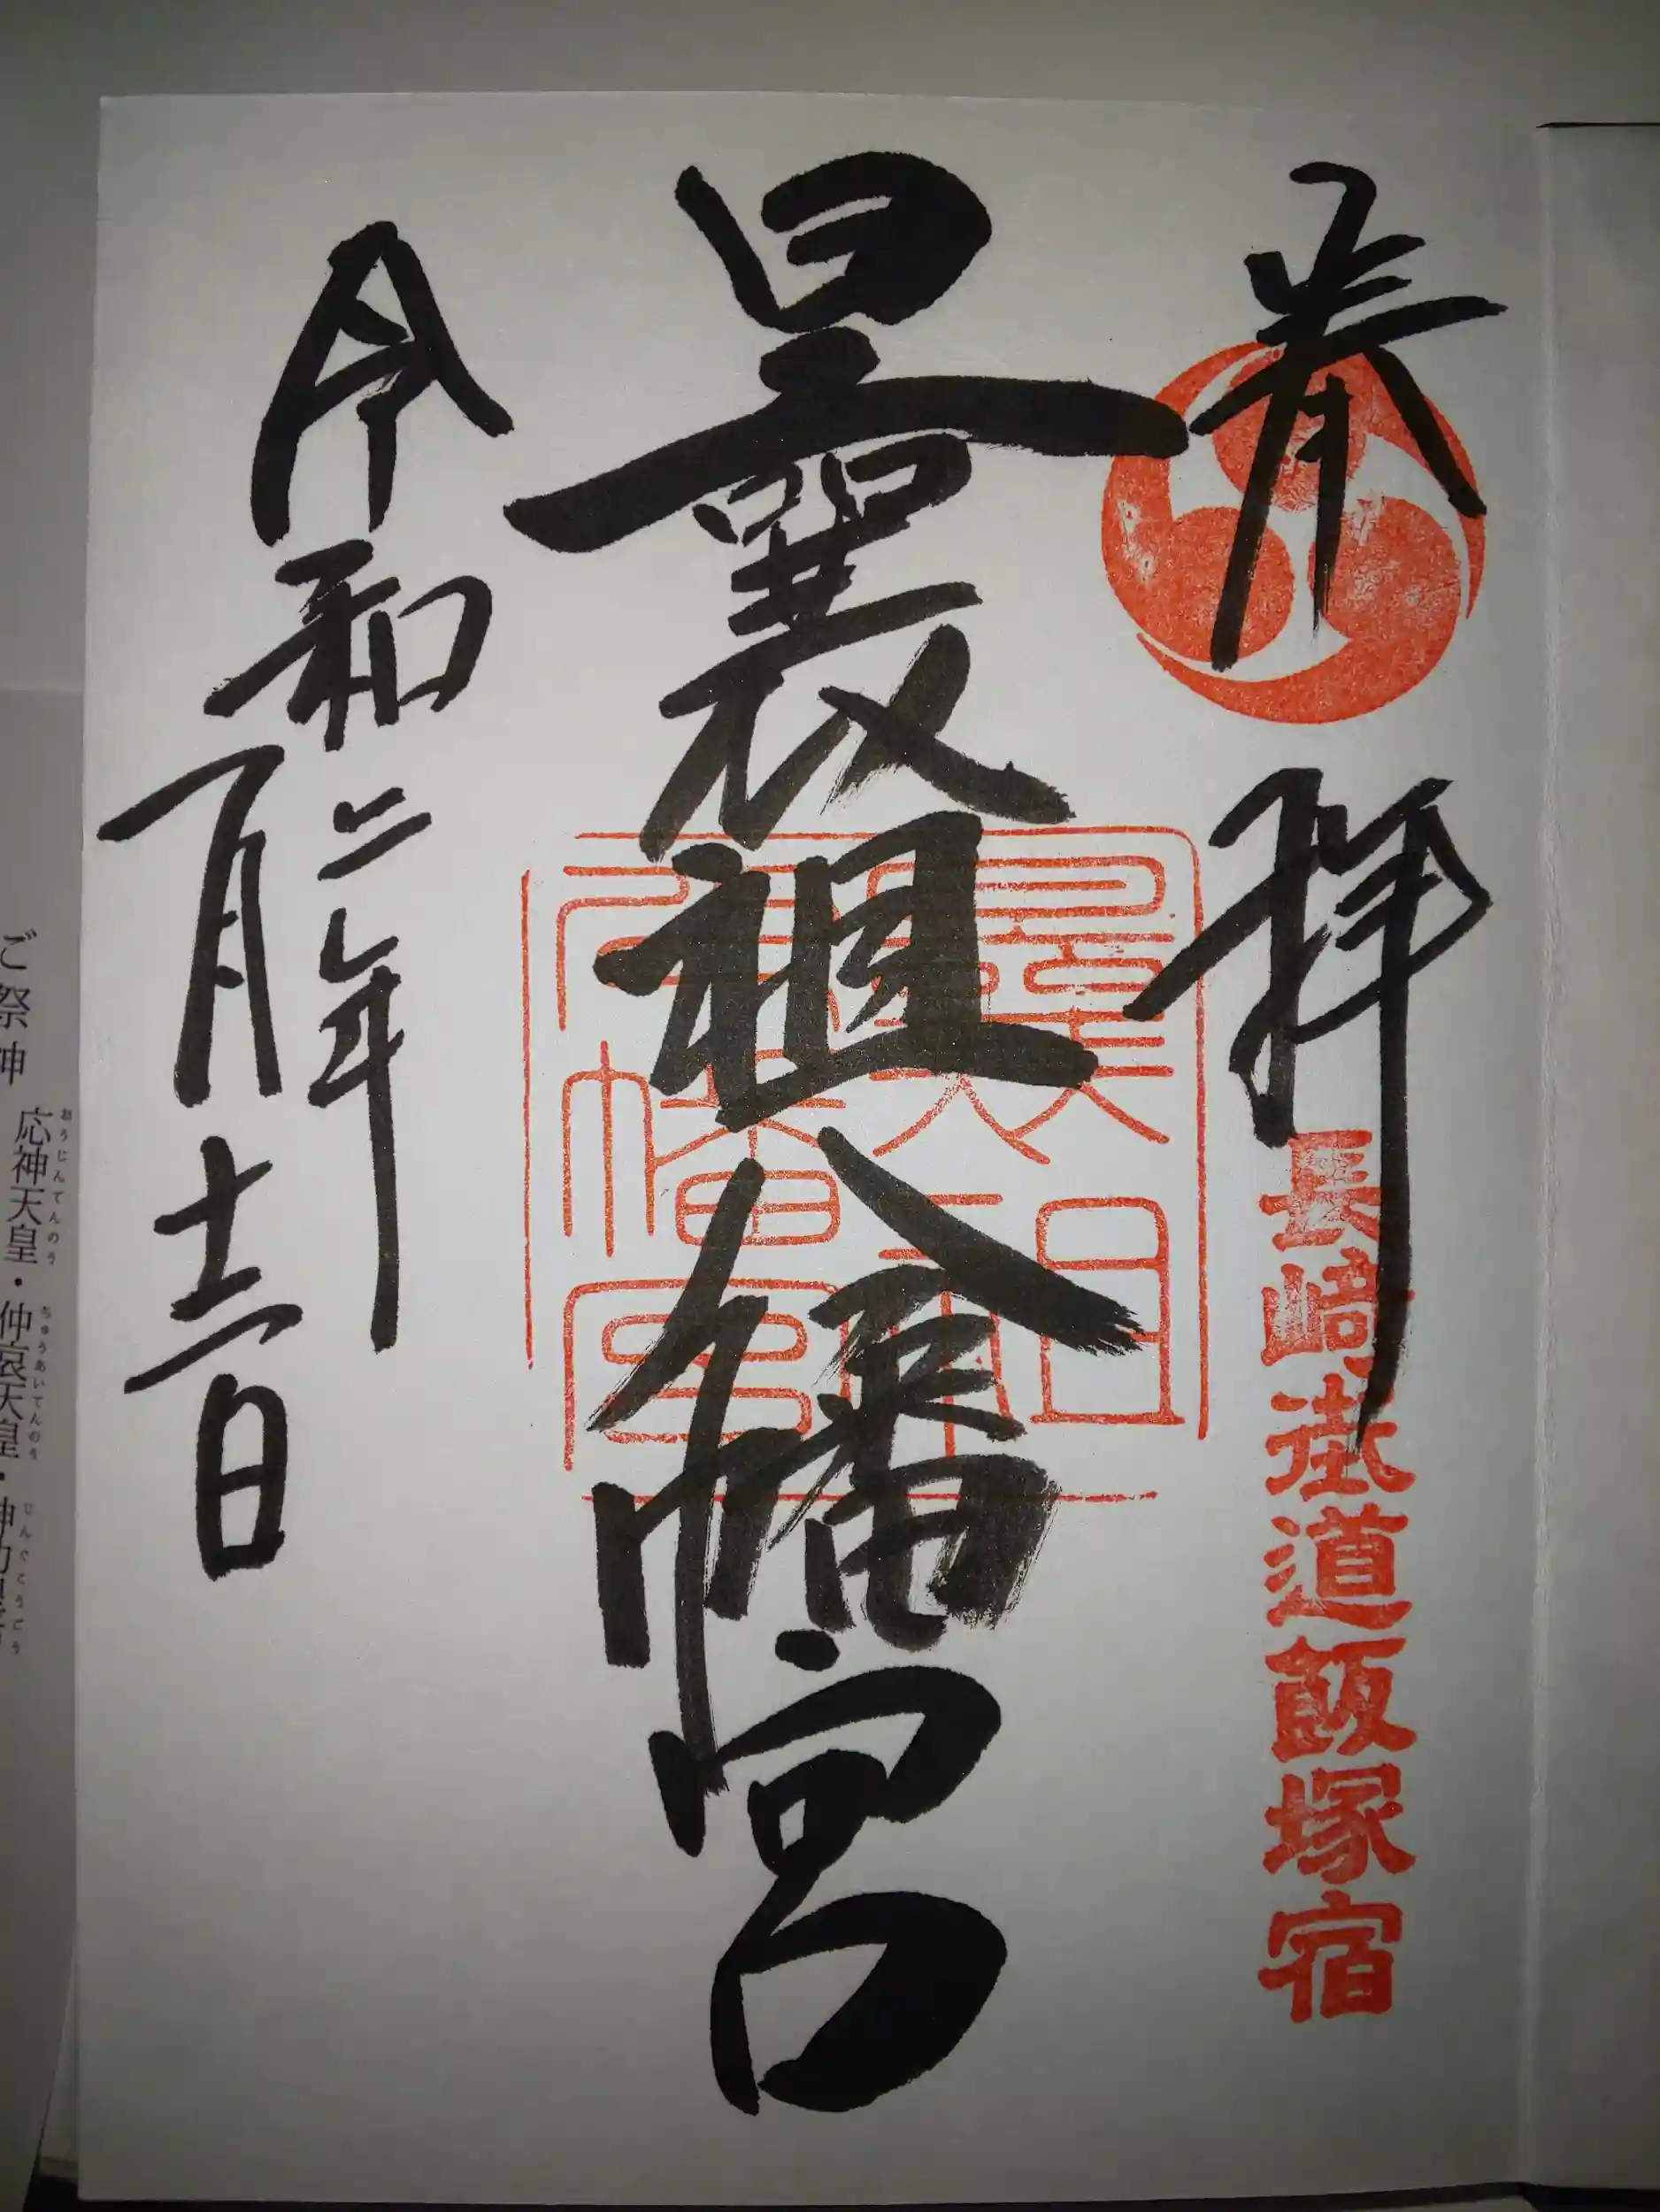 奉拝
長崎街道飯塚宿
曩祖八幡宮
令和二年
一月十二日
ご祭神 応神天皇・仲哀天皇・神功皇
おうじんてんのう ちゅうあいてんのう じんぐうこうごう